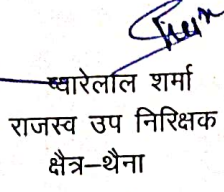 प्यारेलाल शर्मा
राजस्व उप निरिक्षक
क्षैत्र-थैना